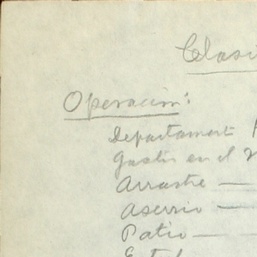 Operación:
Departament
Gastos en el
Arrastre —
Aserrio —
Patio —